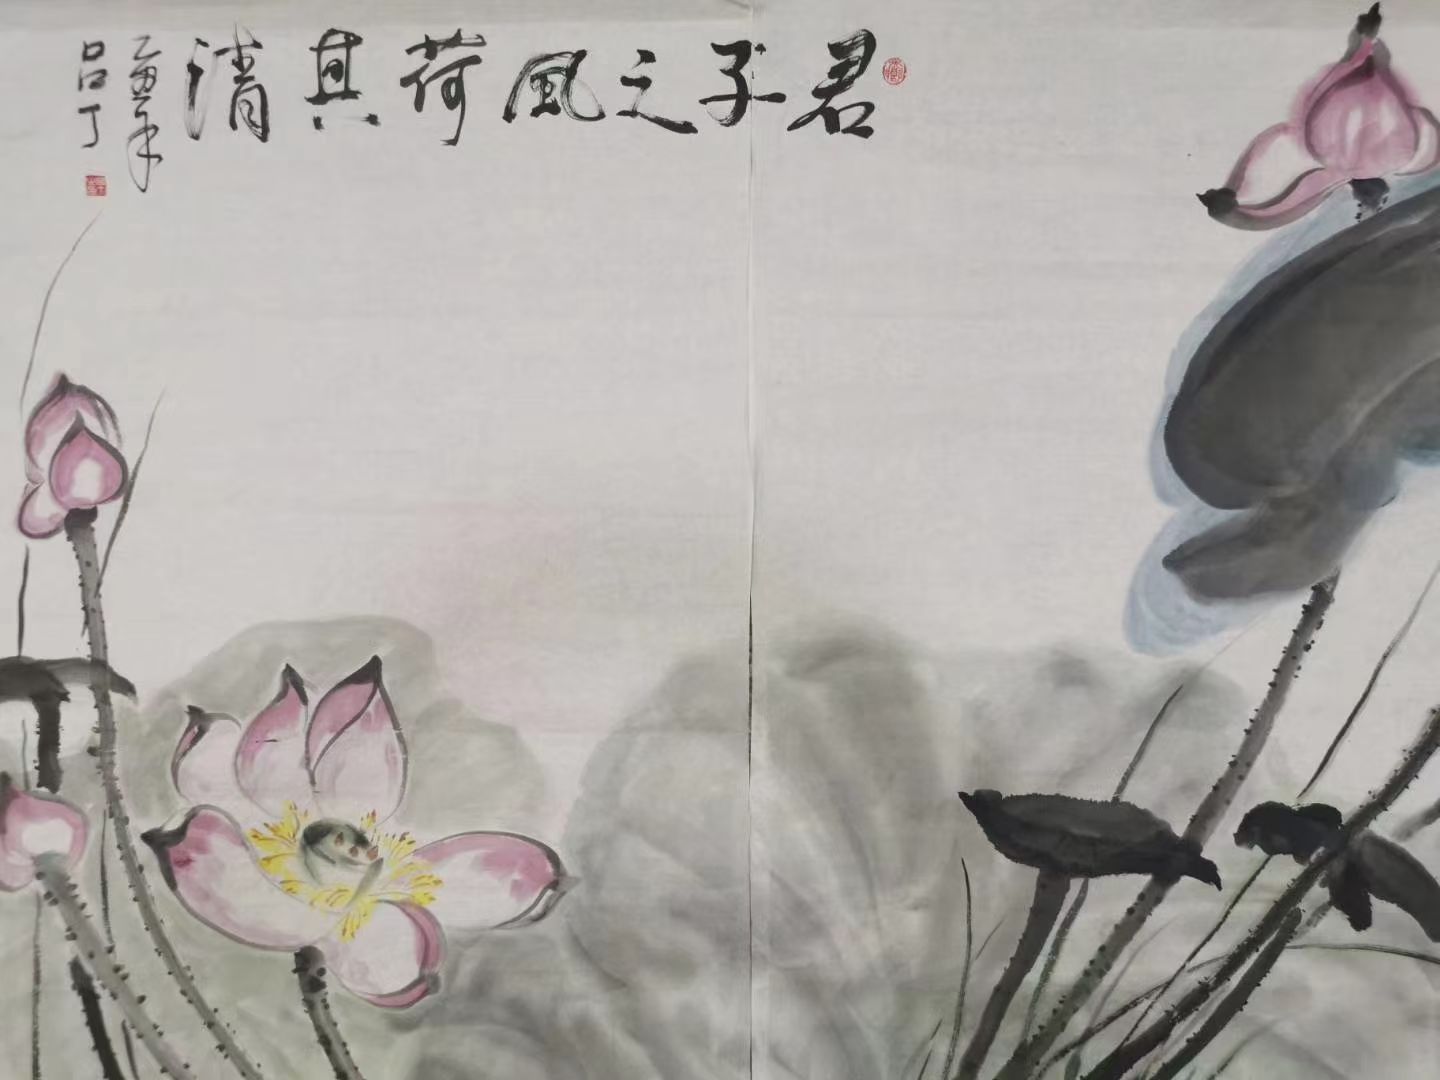 君子之風荷其清
乙酉年
吕丁